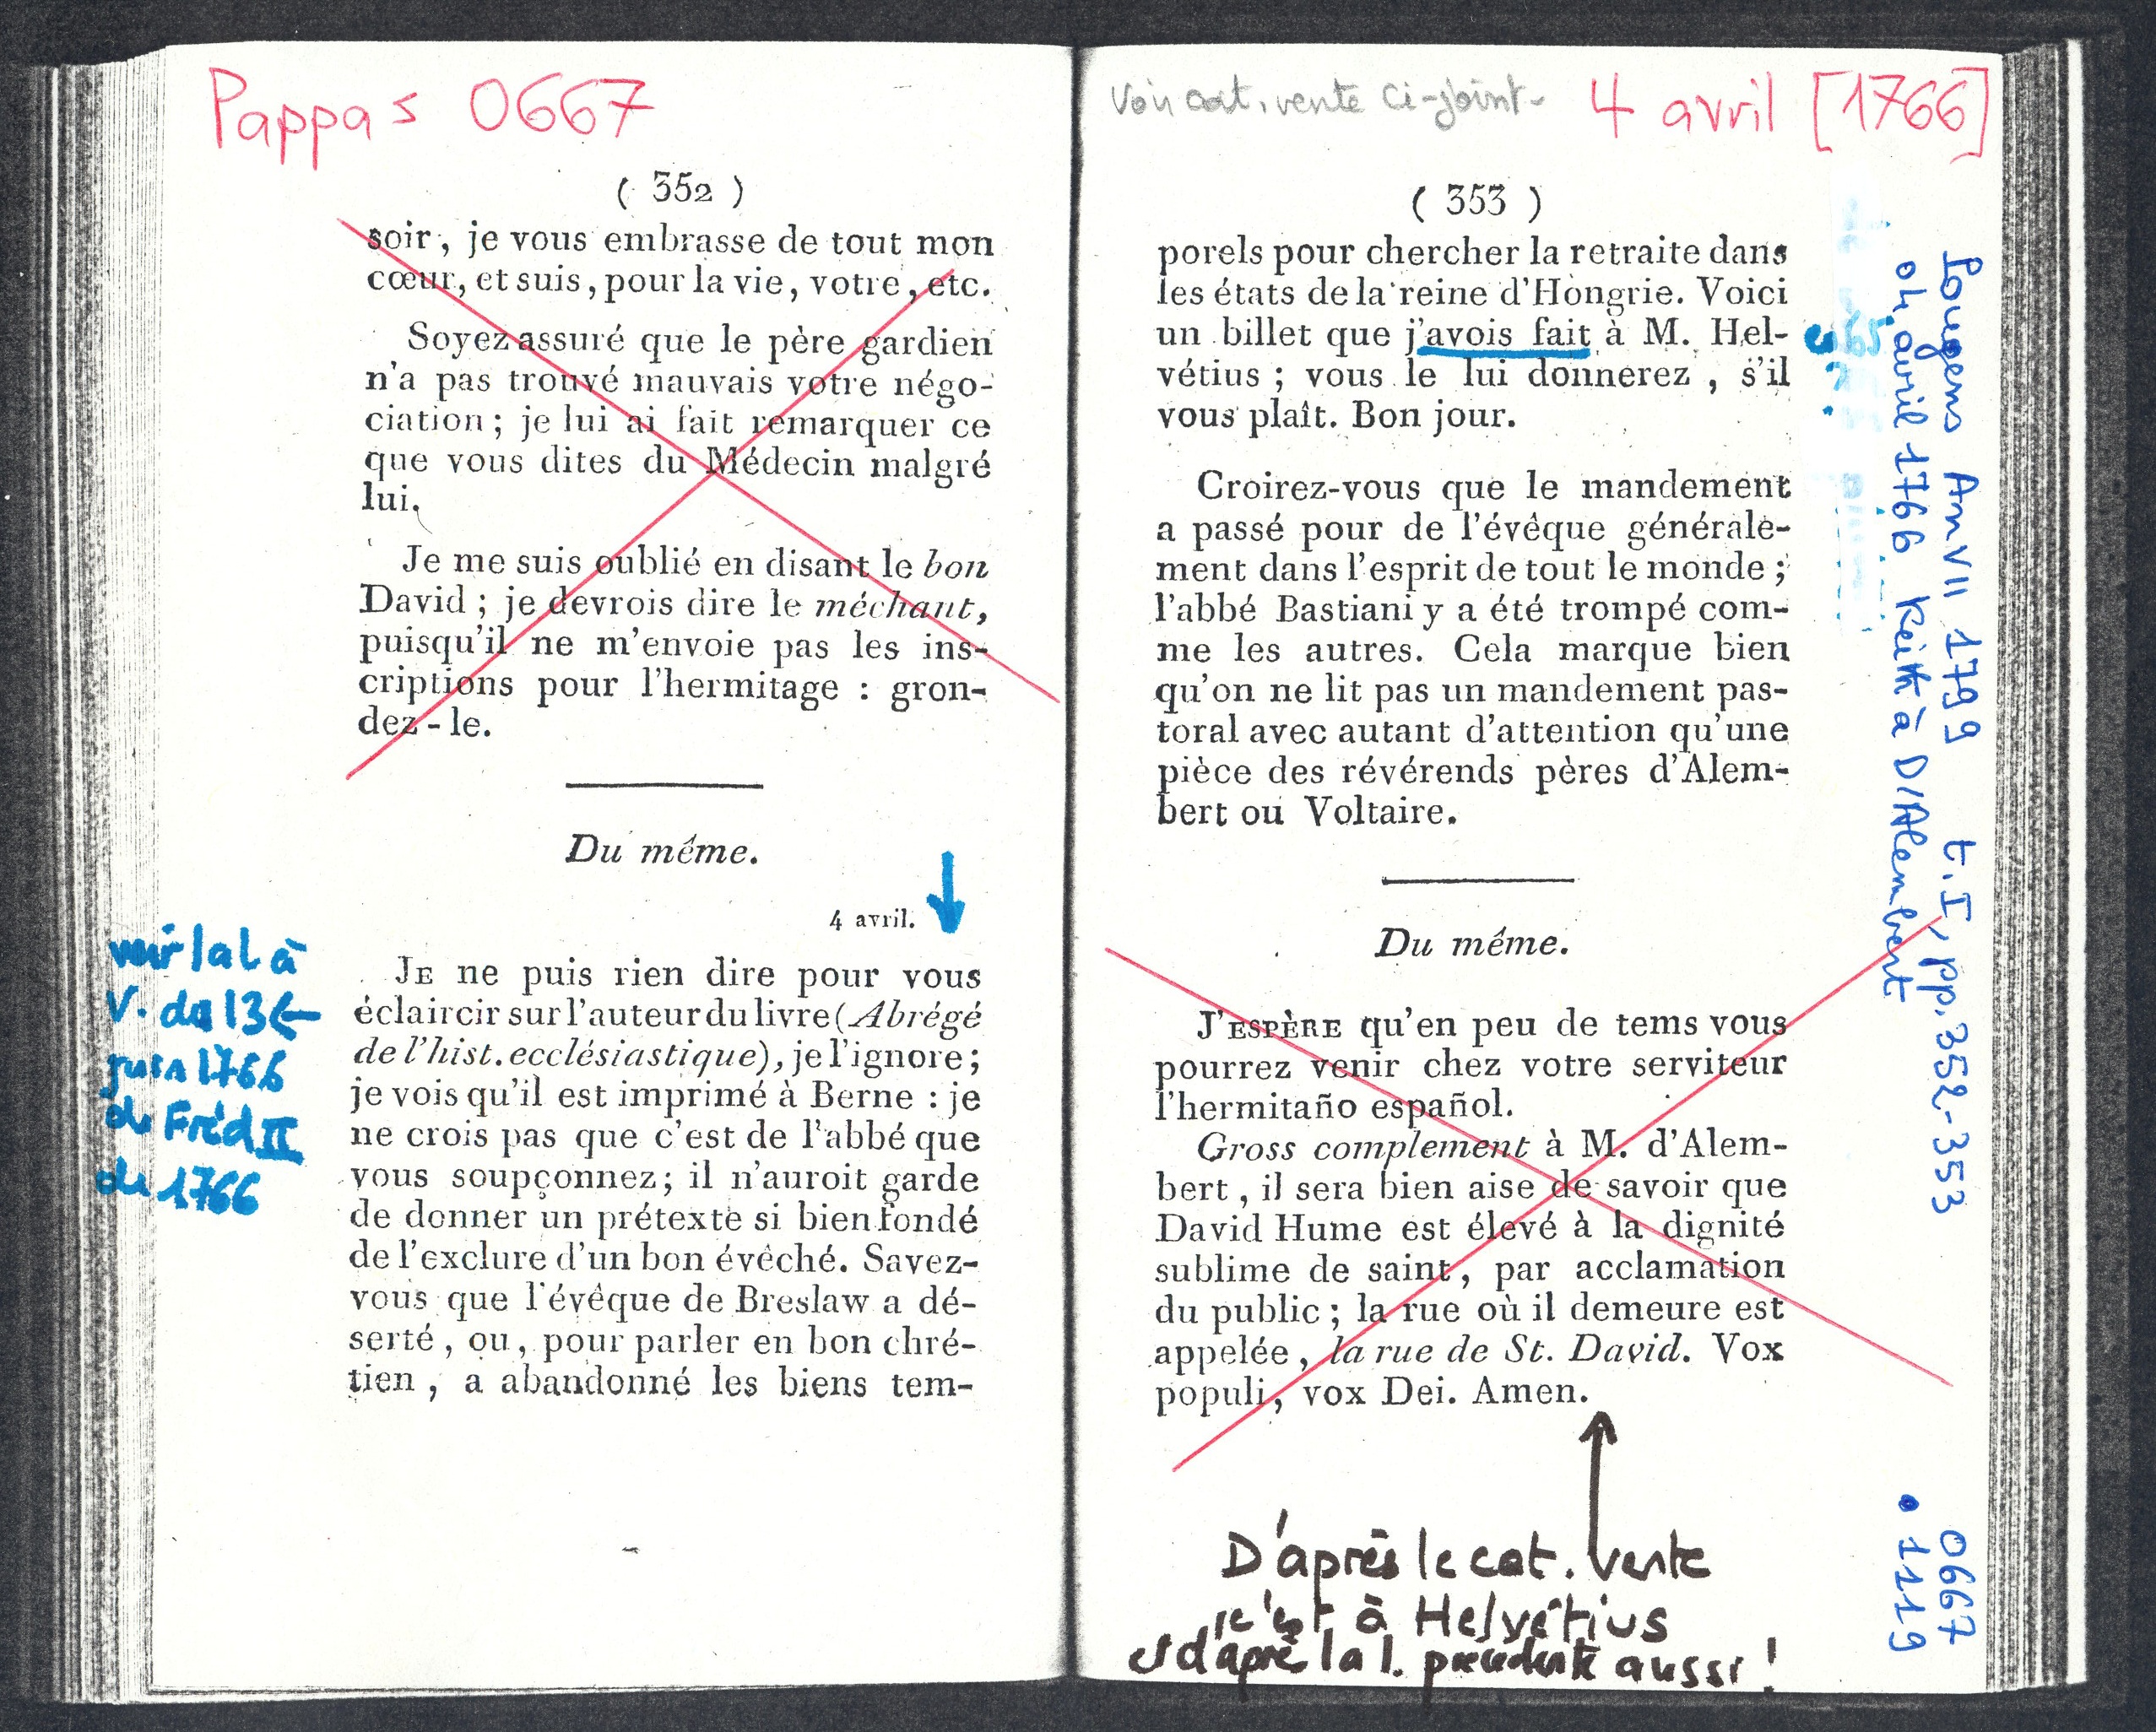 Pappas 0667
( 352 )
soir, je vous embrasse de tout mon
cœur, et suis, pour la vie, votre, etc.
Soyez assuré que le père gardien
n'a pas trouvé mauvais votre négo-
ciation; je lui ai fait remarquer ce
que vous dites du Médecin malgré
lui.
Je me suis oublié en disant le bon
David; je devrois dire le méchant,
puisqu'il ne m'envoie pas les ins-
criptions pour l'hermitage : gron-
dez-le.
Du même.
4 avril.
JE ne puis rien dire pour vous
éclaircir sur l'auteur du livre (Abrégé
de l'hist. ecclésiastique), je l'ignore;
je vois qu'il est imprimé à Berne : je
ne crois pas que c'est de l'abbé que
vous soupçonnez; il n'auroit garde
de donner un prétexte si bien fondé
de l'exclure d'un bon évêché. Savez-
vous que l'évêque de Breslaw a dé-
serté, ou, pour parler en bon chré-
tien, a abandonné les biens tem-
voir la l. à
V. da 13
juin 1766
de Fréd II
de 1766
Voir cat. vente ci-joint-
4 avril [1766]
( 353 )
porels pour chercher la retraite dans
les états de la reine d'Hongrie. Voici
un billet que j'avois fait à M. Hel-
vétius; vous le lui donnerez, s'il
vous plaît. Bon jour.
Croirez-vous que le mandement
a passé pour de l'évêque générale-
ment dans l'esprit de tout le monde;
l'abbé Bastiani y a été trompé com-
me les autres. Cela marque bien
qu'on ne lit pas un mandement pas-
toral avec autant d'attention qu'une
pièce des révérends pères d'Alem-
bert ou Voltaire.
Du même.
J'ESPÈRE qu'en peu de tems vous
pourrez venir chez votre serviteur
l'hermitaño español.
Gross complement à M. d'Alem-
bert, il sera bien aise de savoir que
David Hume est élevé à la dignité
sublime de saint, par acclamation
du public; la rue où il demeure est
appelée, la rue de St. David. Vox
populi, vox Dei. Amen.
D'après le cat. vente
c'est à Helvétius
et d'après la l. précédente aussi !
Pougens An VII 1799 t. I, pp. 352-353 0667
04 avril 1766 Keith à D'Alembert • 1119